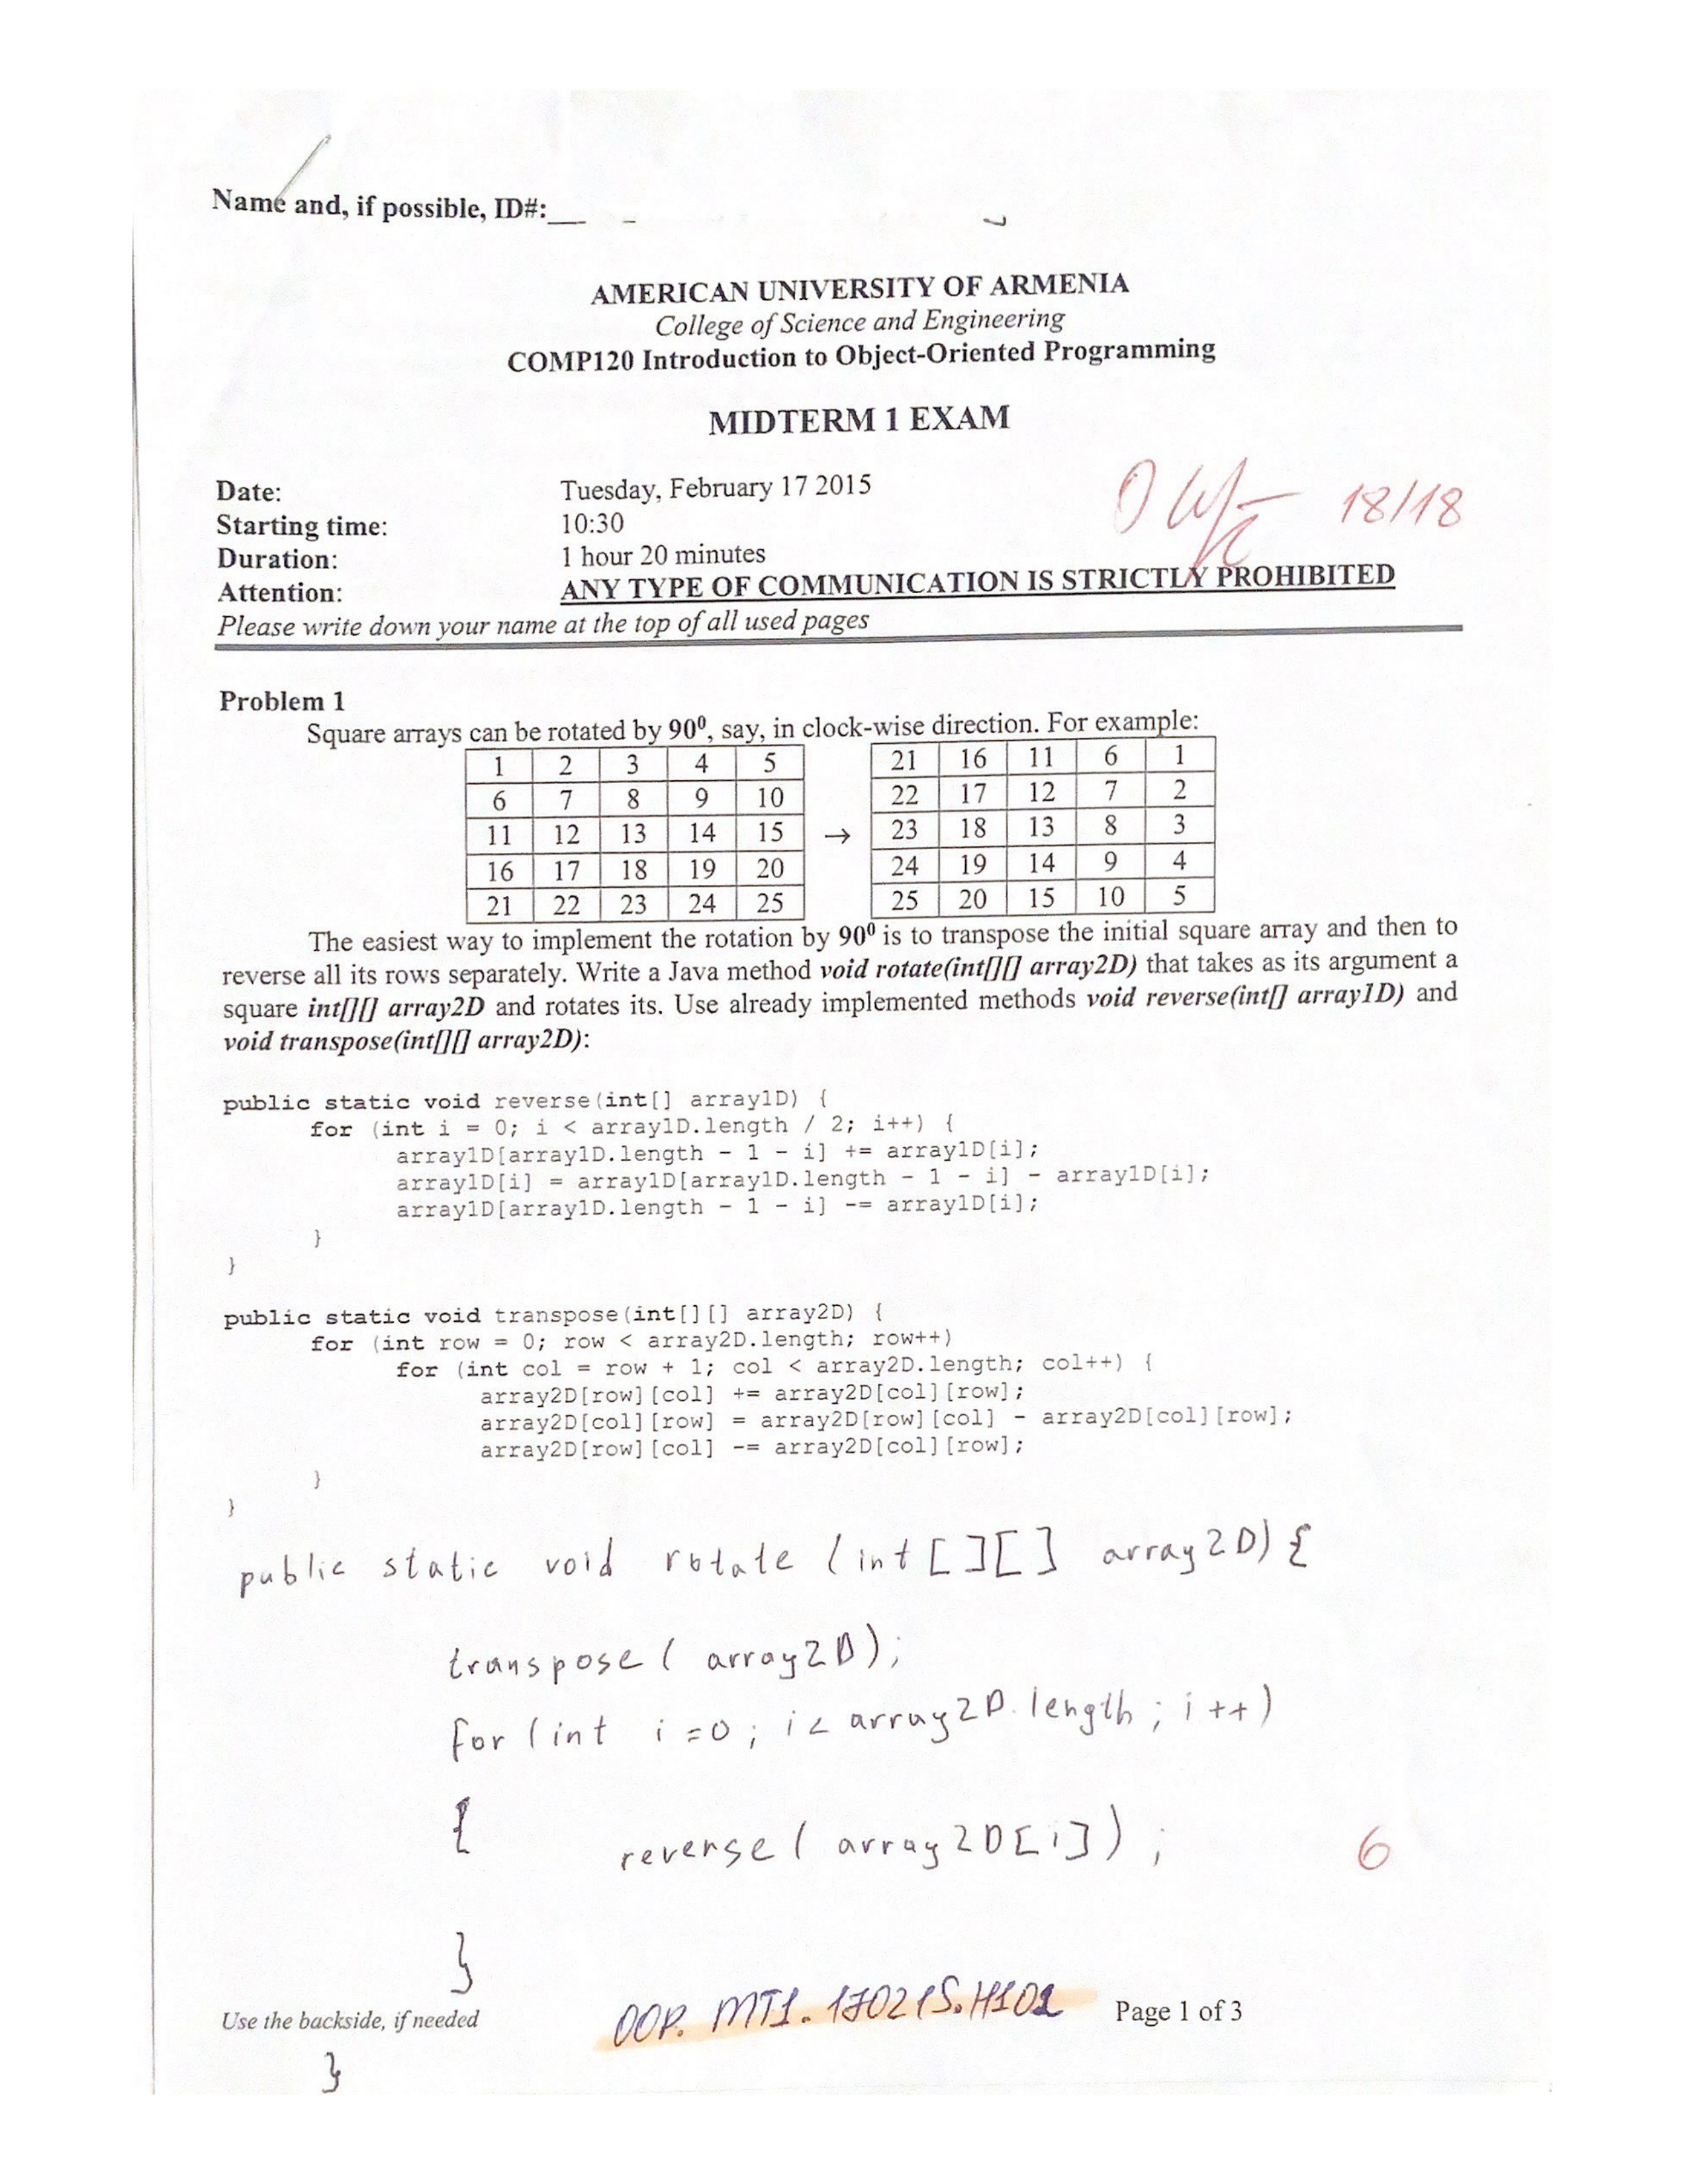 Name and, if possible, ID#:__
AMERICAN UNIVERSITY OF ARMENIA
College of Science and Engineering
COMP120 Introduction to Object-Oriented Programming
MIDTERM 1 EXAM
Date: Tuesday, February 17 2015
Starting time: 10:30
18/18
Duration: 1 hour 20 minutes
Attention: ANY TYPE OF COMMUNICATION IS STRICTLY PROHIBITED
Please write down your name at the top of all used pages
Problem 1
Square arrays can be rotated by 90⁰, say, in clock-wise direction. For example:
1 2 3 4 5 21 16 11 6 1
6 7 8 9 10 22 17 12 7 2
11 12 13 14 15 → 23 18 13 8 3
16 17 18 19 20 24 19 14 9 4
21 22 23 24 25 25 20 15 10 5
The easiest way to implement the rotation by 90⁰ is to transpose the initial square array and then to
reverse all its rows separately. Write a Java method void rotate(int[][] array2D) that takes as its argument a
square int[][] array2D and rotates its. Use already implemented methods void reverse(int[] array1D) and
void transpose(int[][] array2D):
public static void reverse(int[] array1D) {
for (int i = 0; i < array1D.length / 2; i++) {
array1D[array1D.length - 1 - i] += array1D[i];
array1D[i] = array1D[array1D.length - 1 - i] - array1D[i];
array1D[array1D.length - 1 - i] -= array1D[i];
}
}
public static void transpose(int[][] array2D) {
for (int row = 0; row < array2D.length; row++)
for (int col = row + 1; col < array2D.length; col++) {
array2D[row][col] += array2D[col][row];
array2D[col][row] = array2D[row][col] - array2D[col][row];
array2D[row][col] -= array2D[col][row];
}
}
public static void rotate (int [][] array2D) {
transpose( array2D);
for (int i=0; i< array2D.length; i++)
{ reverse( array2D[i]) ;
6
}
Use the backside, if needed OOP. MT1. 170215.H101 Page 1 of 3
}